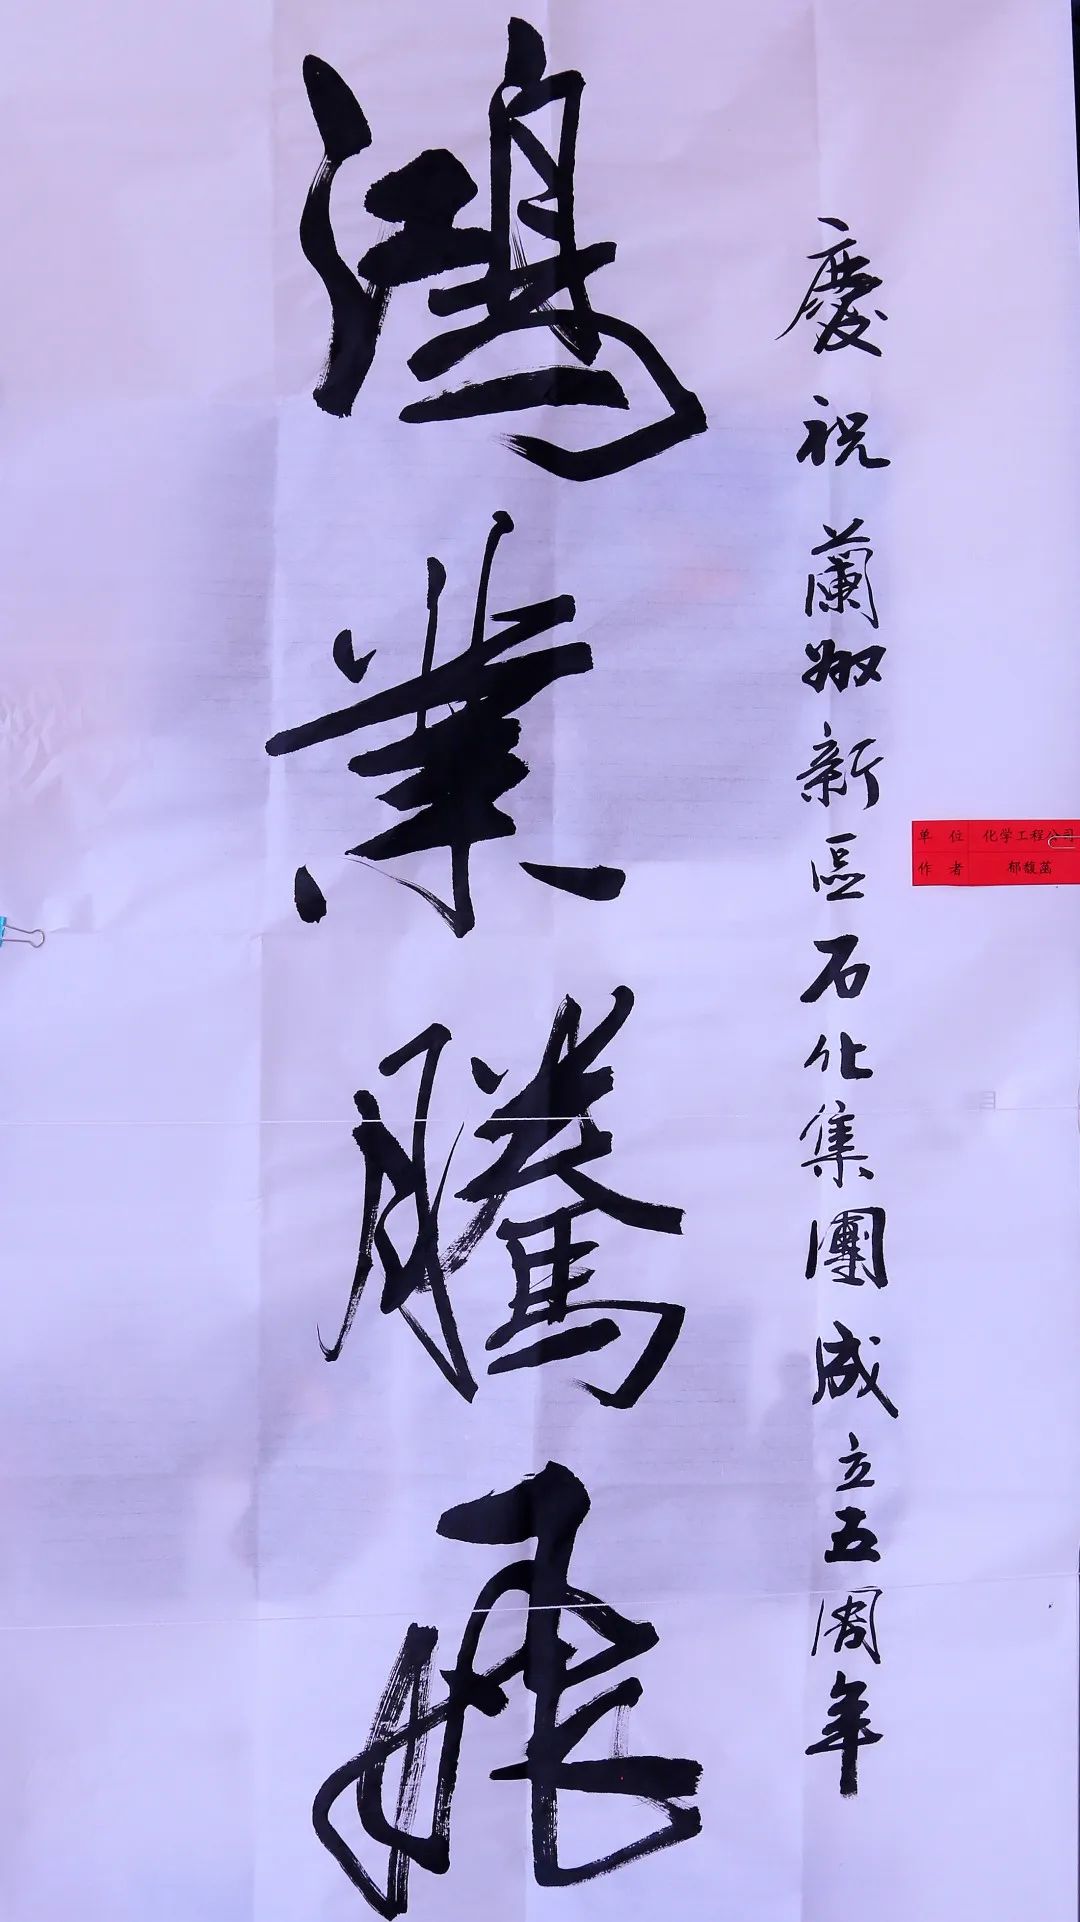 慶祝蘭州新區石化集團成立五周年
鴻業騰飛
单位 化学工程公司
作者 郁馥菡